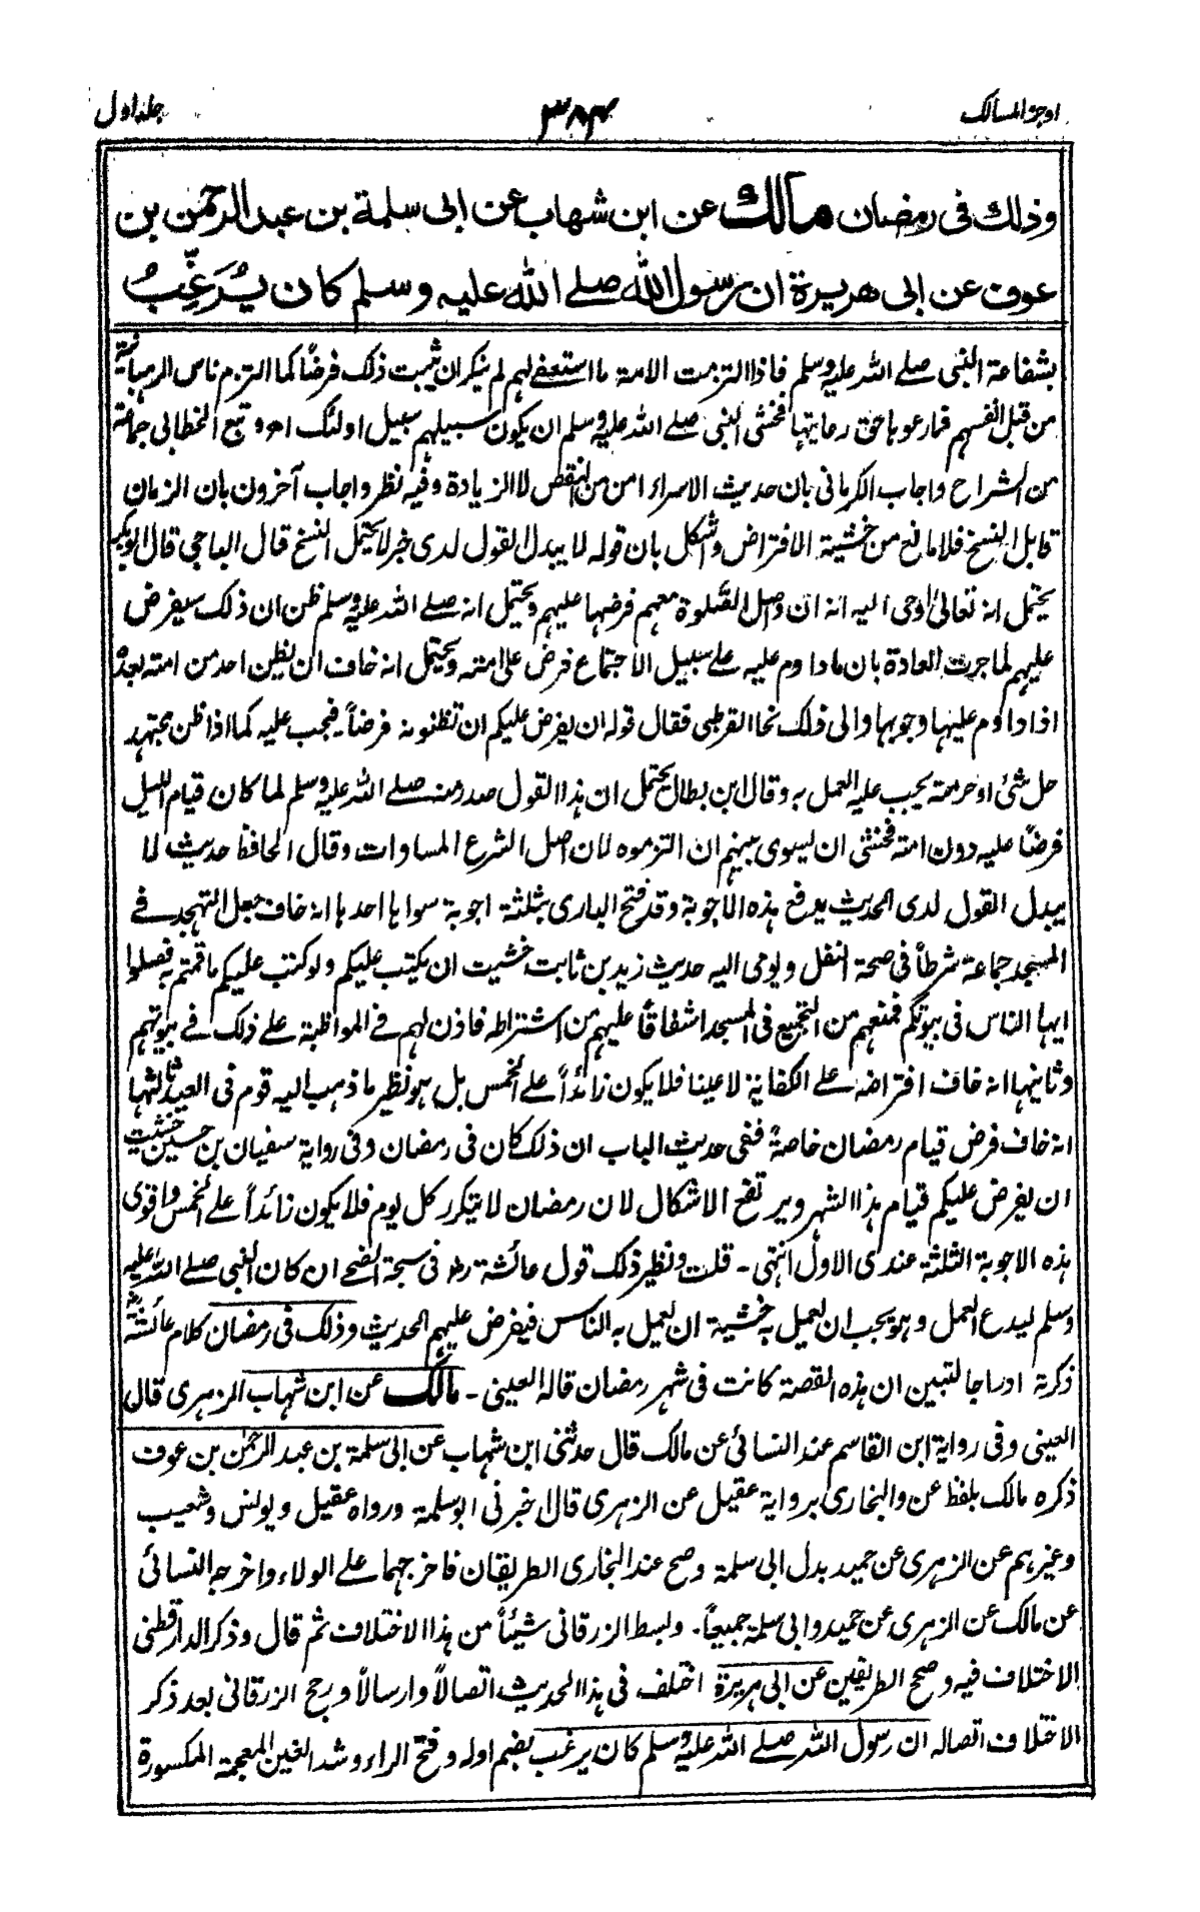 اوجز المسالك
٣٨٤
جلد اول
وذلك فى رمضان مالك عن ابن شهاب عن ابى سلمة بن عبد الرحمن بن
عوف عن ابى هريرة ان رسول الله صلے الله عليه وسلم كان يُرَغِّبُ
بشفاعة النبى صلے الله عليه وسلم فاذا التزمت الامة ما استعفے لهم لم ينكر ان يثبت ذلك فرضًا كما التزم ناس الرهبانية
من قبل انفسهم فما رعوها حق رعايتها فخشى النبى صلے الله عليه وسلم ان يكون سبيلهم سبيل اولئك اه وتبع الخطابى جماعة
من الشراح واجاب الكرمانى بان حديث الاسراء امن من النقص لا الزيادة وفيه نظر واجاب آخرون بان الزمان
قابل النسخ فلا مانع من خشية الافتراض واشكل بان قوله لا يبدل القول لدى خبر لا يحتمل النسخ قال الباجى قال ابو بكر
يحتمل انه تعالىٰ اوحى اليه انه ان واصل الصَّلوة معهم فرضها عليهم ويحتمل انه صلے الله عليه وسلم ظن ان ذلك سيفرض
عليهم لما جرت العادة بان ما داوم عليه علے سبيل الاجتماع فرض على امته ويحتمل انه خاف ان يظن احد من امته بعده
اذا داوم عليها وجوبها والى ذلك نحا القرطبى فقال قوله ان يفرض عليكم ان تظنونه فرضاً فيجب عليه كما اذا ظن مجتهد
حل شئ او حرمته يجب عليه العمل به وقال ابن بطال يحتمل ان هذا القول صدر منه صلے الله عليه وسلم لما كان قيام الليل
فرضًا عليه دون امته فخشى ان يسوى بينهم ان التزموه لان اصل الشرع المساوات وقال الحافظ حديث لا
يبدل القول لدى الحديث يدفع هذه الاجوبة وقد فتح البارى بثلثة اجوبة سواها احدها انه خاف جعل التهجد فے
المسجد جماعة شرطاً فى صحة النفل ويومى اليه حديث زيد بن ثابت خشيت ان يكتب عليكم ولو كتب عليكم ما قمتم به فصلوا
ايها الناس فى بيوتكم فمنعهم من التجميع فى المسجد اشفاقًا عليهم من اشتراطه فاذن لهم فے المواظبة علے ذلك فے بيوتهم
وثانيها انه خاف افتراضه علے الكفاية لا عينا فلا يكون زائداً علے الخمس بل هو نظير ما ذهب اليه قوم فى العيد ثالثها
انه خاف فرض قيام رمضان خاصة ففى حديث الباب ان ذلك كان فى رمضان وفى رواية سفيان بن حسين خشيت
ان يفرض عليكم قيام هذا الشهر ويرتفع الاشكال لان رمضان لا يتكرر كل يوم فلا يكون زائداً علے الخمس واقوى
هذه الاجوبة الثلثة عندى الاول انتهى - قلت ونظير ذلك قول عائشة رض فى سبحة الضحے ان كان النبى صلے الله عليه
وسلم ليدع العمل وهو يحب ان يعمل به خشية ان يعمل به الناس فيفرض عليهم الحديث وذلك فى رمضان كلام عائشة رض
ذكرته ادراجا لتبين ان هذه القصة كانت فى شهر رمضان قاله العينى - مالك عن ابن شهاب الزهرى قال
العينى وفى رواية ابن القاسم عند النسائى عن مالك قال حدثنى ابن شهاب عن ابى سلمة بن عبد الرحمٰن بن عوف
ذكره مالك بلفظ عن والبخارى برواية عقيل عن الزهرى قال اخبرنى ابو سلمة ورواه عقيل ويونس وشعيب
وغيرهم عن الزهرى عن حميد بدل ابى سلمة وصح عند البخارى الطريقان فاخرجهما علے الولاء واخرجه النسائى
عن مالك عن الزهرى عن حميد وابى سلمة جميعاً. وبسط الزرقانى شيئاً من هذا الاختلاف ثم قال وذكر الدارقطنى
الاختلاف فيه وصحح الطريقين عن ابى هريرة اختلف فى هذا الحديث اتصالاً وارسالاً ورجح الزرقانى بعد ذكر
الاختلاف اتصاله ان رسول الله صلے الله عليه وسلم كان يرغب بضم اوله وفتح الراء وشد الغين المعجمة المكسورة